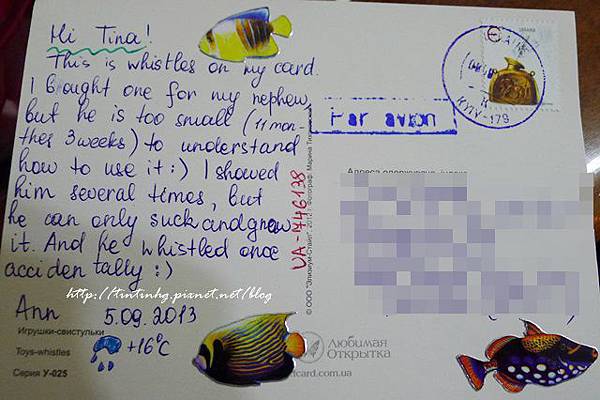 Hi Tina!
This is whistles on my card.
I brought one for my nephew,
but he is too small (11 mon-
thes 3 weeks) to understand
how to use it :) I showed
him several times, but
he can only suck and gnaw
it. And he whistled once
acciden tally :)
http://tintinhg.pixnet.net/blog
Ann 5.09.2013
Игрушки-свистульки
Toys-whistles
+16°C
Серия У-025
UA-1746138
© ООО "Элизиум-Стайл", 2012 г. Фотограф: Марина
Par avion
КYIV-179
Адреса одержувача, індекс
Любимая
Открытка
card.com.ua